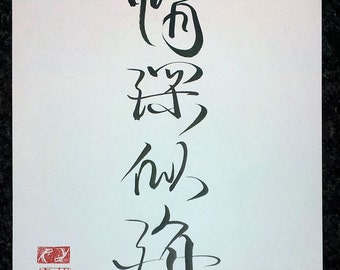 情深似海